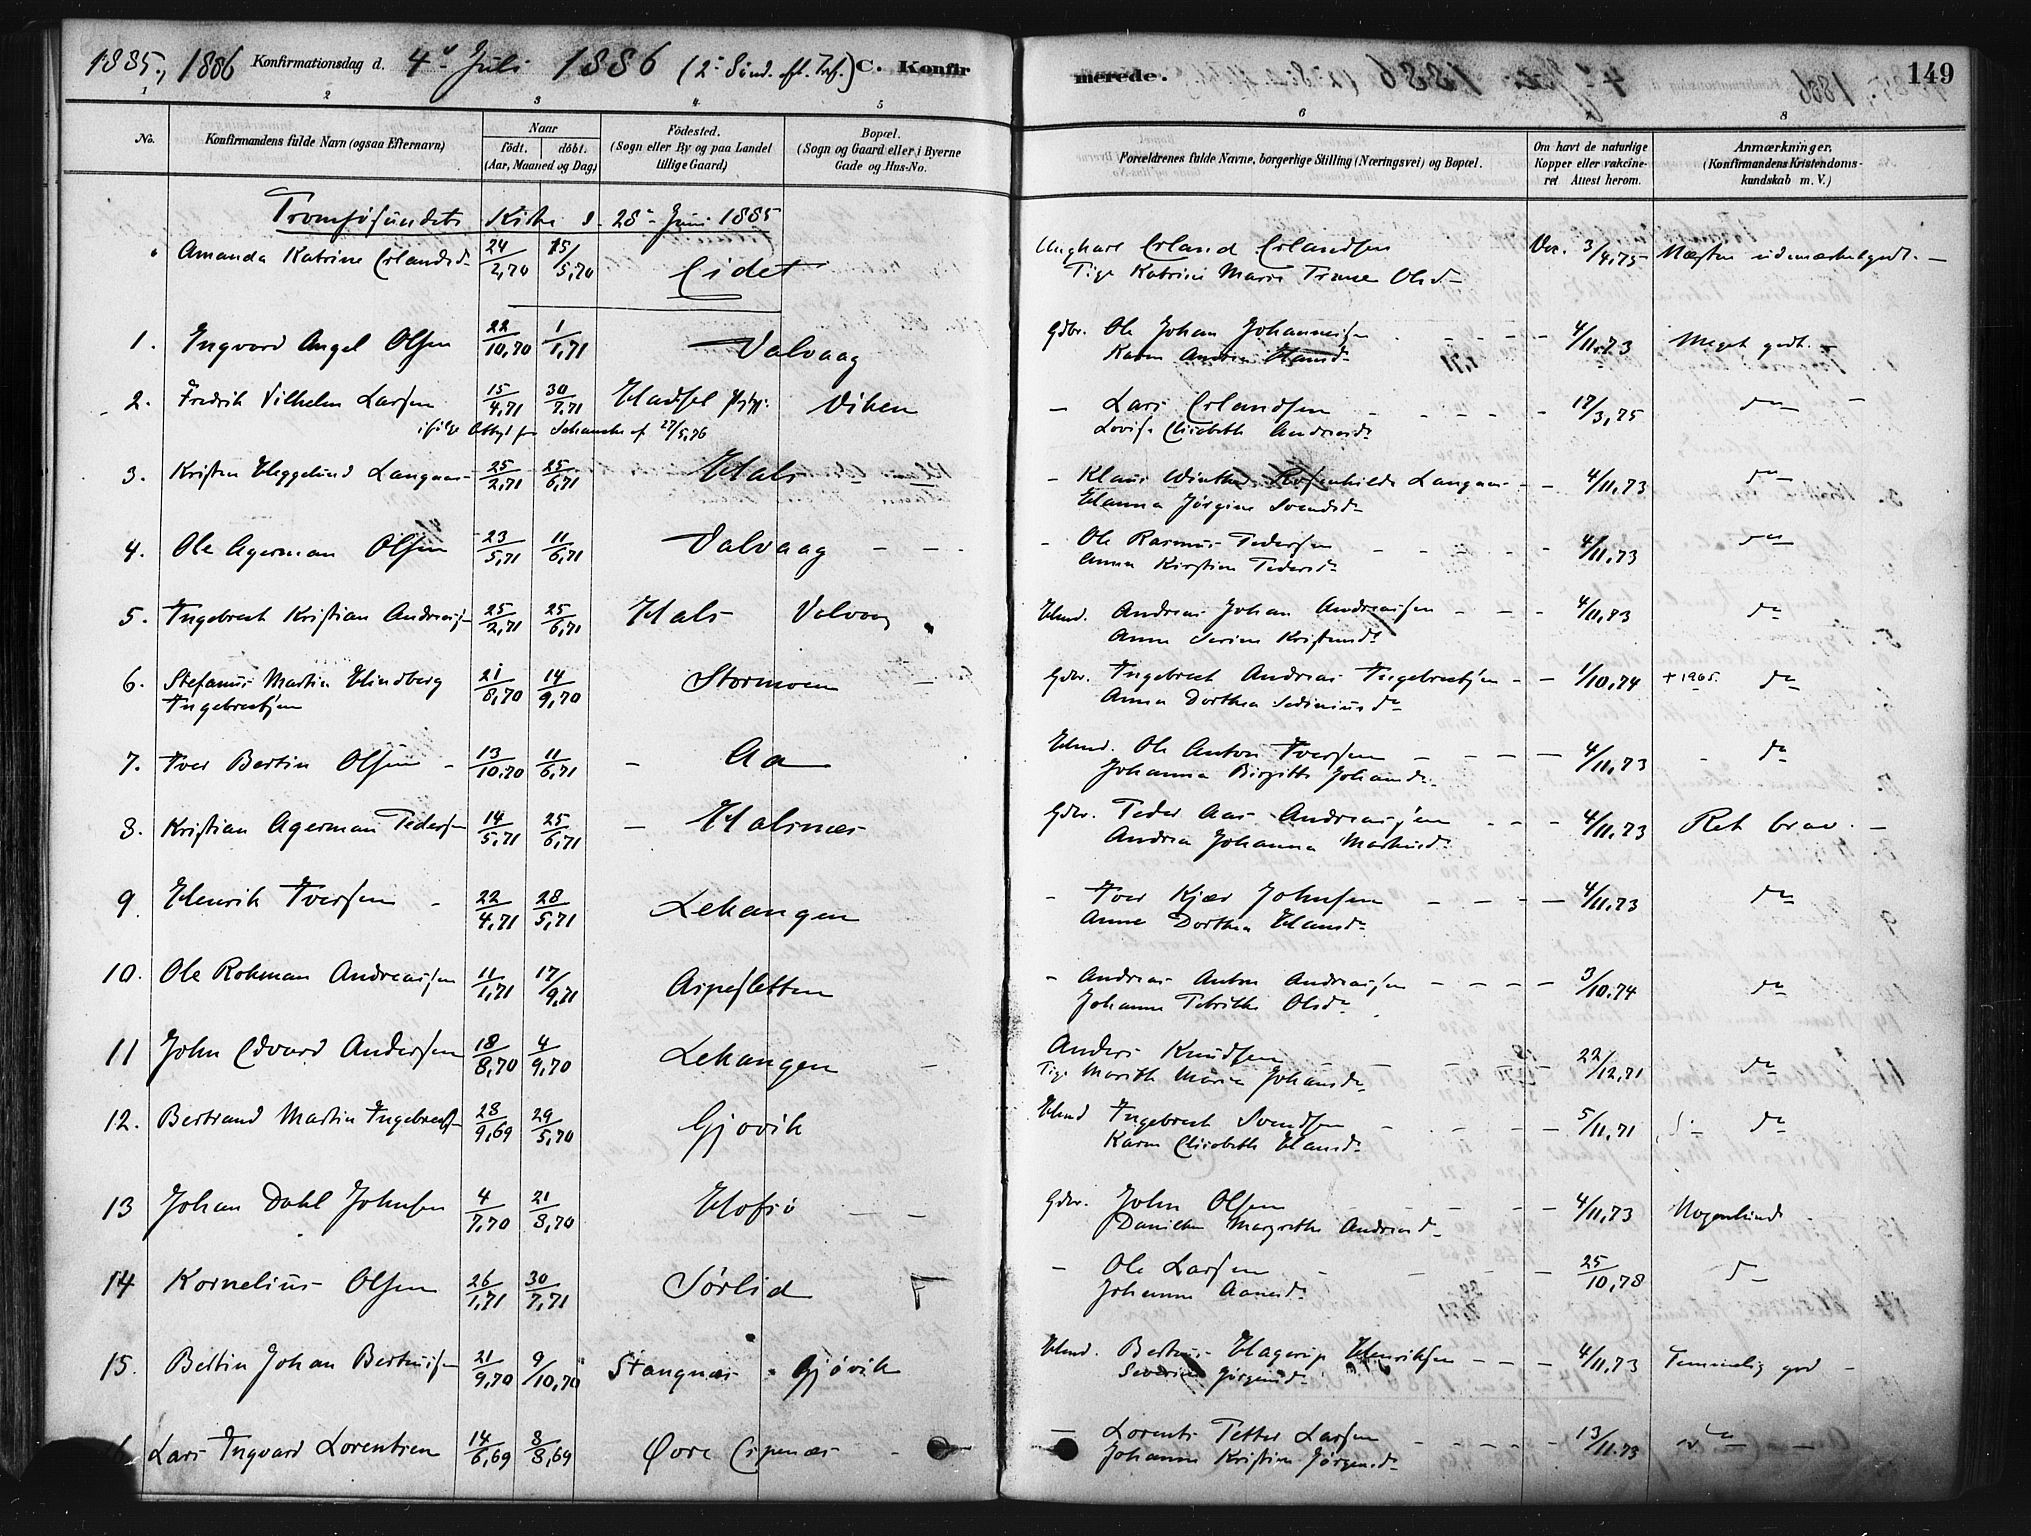 1885, 1886 Konfirmationsdag d. 4de Juli 1886 (2. Sönd. eft. Tref.) C. Konfirmerede. 149
1 2 3 4 5 6 7 8
No. Konfirmandens fulde Navn (ogsaa Efternavn) Naar født. døbt. (Aar, Maaned og Dag) Fødested. (Sogn eller By og paa Landet tillige Gaard) Bopæl. (Sogn og Gaard eller i Byerne Gade og Hus-No. Forældrenes fulde Navne, borgerlige Stilling (Næringsvei) og Bopæl. Om havt de naturlige Kopper eller vakcineret Attest herom. Anmærkninger. (Konfirmandens Kristendomskundskab m. V.)
Tromsøsundets Kirke d. 28 Juni 1885
Amanda Katrine Erlandsd. 24/2,70 15/5,70 Eidet Ungkarl Erland Erlandsen Vac. 3/4,75 Næsten udmærket godt. –
Pige Katrine Marie Olsd.
1. Ingvard Angel Olsen 22/10,70 1/1,71 Valvaag Gdbr. Ole Johan Johannessen – – – 4/11,73 Meget godt. –
Karen Hansd.
2. Fredrik Vilhelm Larsen 15/4,71 30/7,71 Hadsel Viken – Lars Erlandsen – – – 17/3,75 do –
27/5,76 Lovise Elisabeth Andreasd.
3. Kristen Heggelund Langaas 25/2,71 25/6,71 Hals – Klaus Langaas – – 4/11,73 do
Hanna Jørgine Svendsd.
4. Ole Agerman Olsen 23/5,71 11/6,71 Valvaag – – – Ole Rasmus Pedersen – – – 4/11,73 do
Anna Kirstine Pedersd.
5. Ingebrect Kristian Andreass. 25/2,71 25/6,71 Hals Valvaag Hmd. Andreas Johan Andreassen – – – 4/11,83 do
Anne Serine Kristensd.
6. Stefanus Martin Hindberg 21/8,70 14/9,70 Stormoen – Gdbr. Ingebrect Andreas Ingebrectsen – – 1/10,74 + 1965. do
Ingebrectsen Anna Dorthea
7. Iver Bertin Olsen – 13/10,70 11/6,71 – Aa Hmd. Ole Anton Iversen – – – 4/11,73 – do
Johanna Birgitte Johansd.
8. Kristian Agerman Pedersen 14/5,71 25/6,71 – Halsnæs Gdbr. Peder Aas Andreassen – – – 4/11,73 Ret brav. –
Andrea Johanna
9. Henrik Iversen – 22/4,71 28/5,71 Lekangen – Iver Kjær Johnsen – – – 4/11,73 do
Anne Dorthea Hansd.
10. Ole Rohman Andreassen 11/1,71 17/9,71 Aspesletten – Andreas Anton Andreassen – – – 3/10,74 do
Johanne Olsd.
11 John Edvard Andersen 18/8,70 4/9,70 Lekangen – Anders Knudsen – – – 22/12,71 do
Pige Marith Maria Johansd.
12. Bertrand Martin Ingebrects. 28/9,69 29/5,70 Gjøvik Hmd Ingebrect Svendsen – – – 5/11,71 do
Karen Elisabeth Hansd.
13 Johan Dahl Johnsen 4/7,70 21/8,70 Hofsö – – Gdbr. John Olsen – – – 4/11,73 Nogenlunde
Margrethe Andreasd.
14 Kornelius Olsen 26/1,71 30/7,71 Sørlid F – Ole Larsen – – – 25/10,78 do
Johanne
15. Bertin Johan Bertheussen 21/9,70 9/10,70 Stangnæs Gjøvik Hmd. Hagerup Henriksen – – – 4/11,73 Temmelig god –
Severine Jørgensd.
16 Lars Ingvard Lorentsen 14/6,69 8/8,69 Øvre Espenæs – – Lorents Petter Larsen – – – 13/11,73 do –
Johanne Kristine Jørgensd.